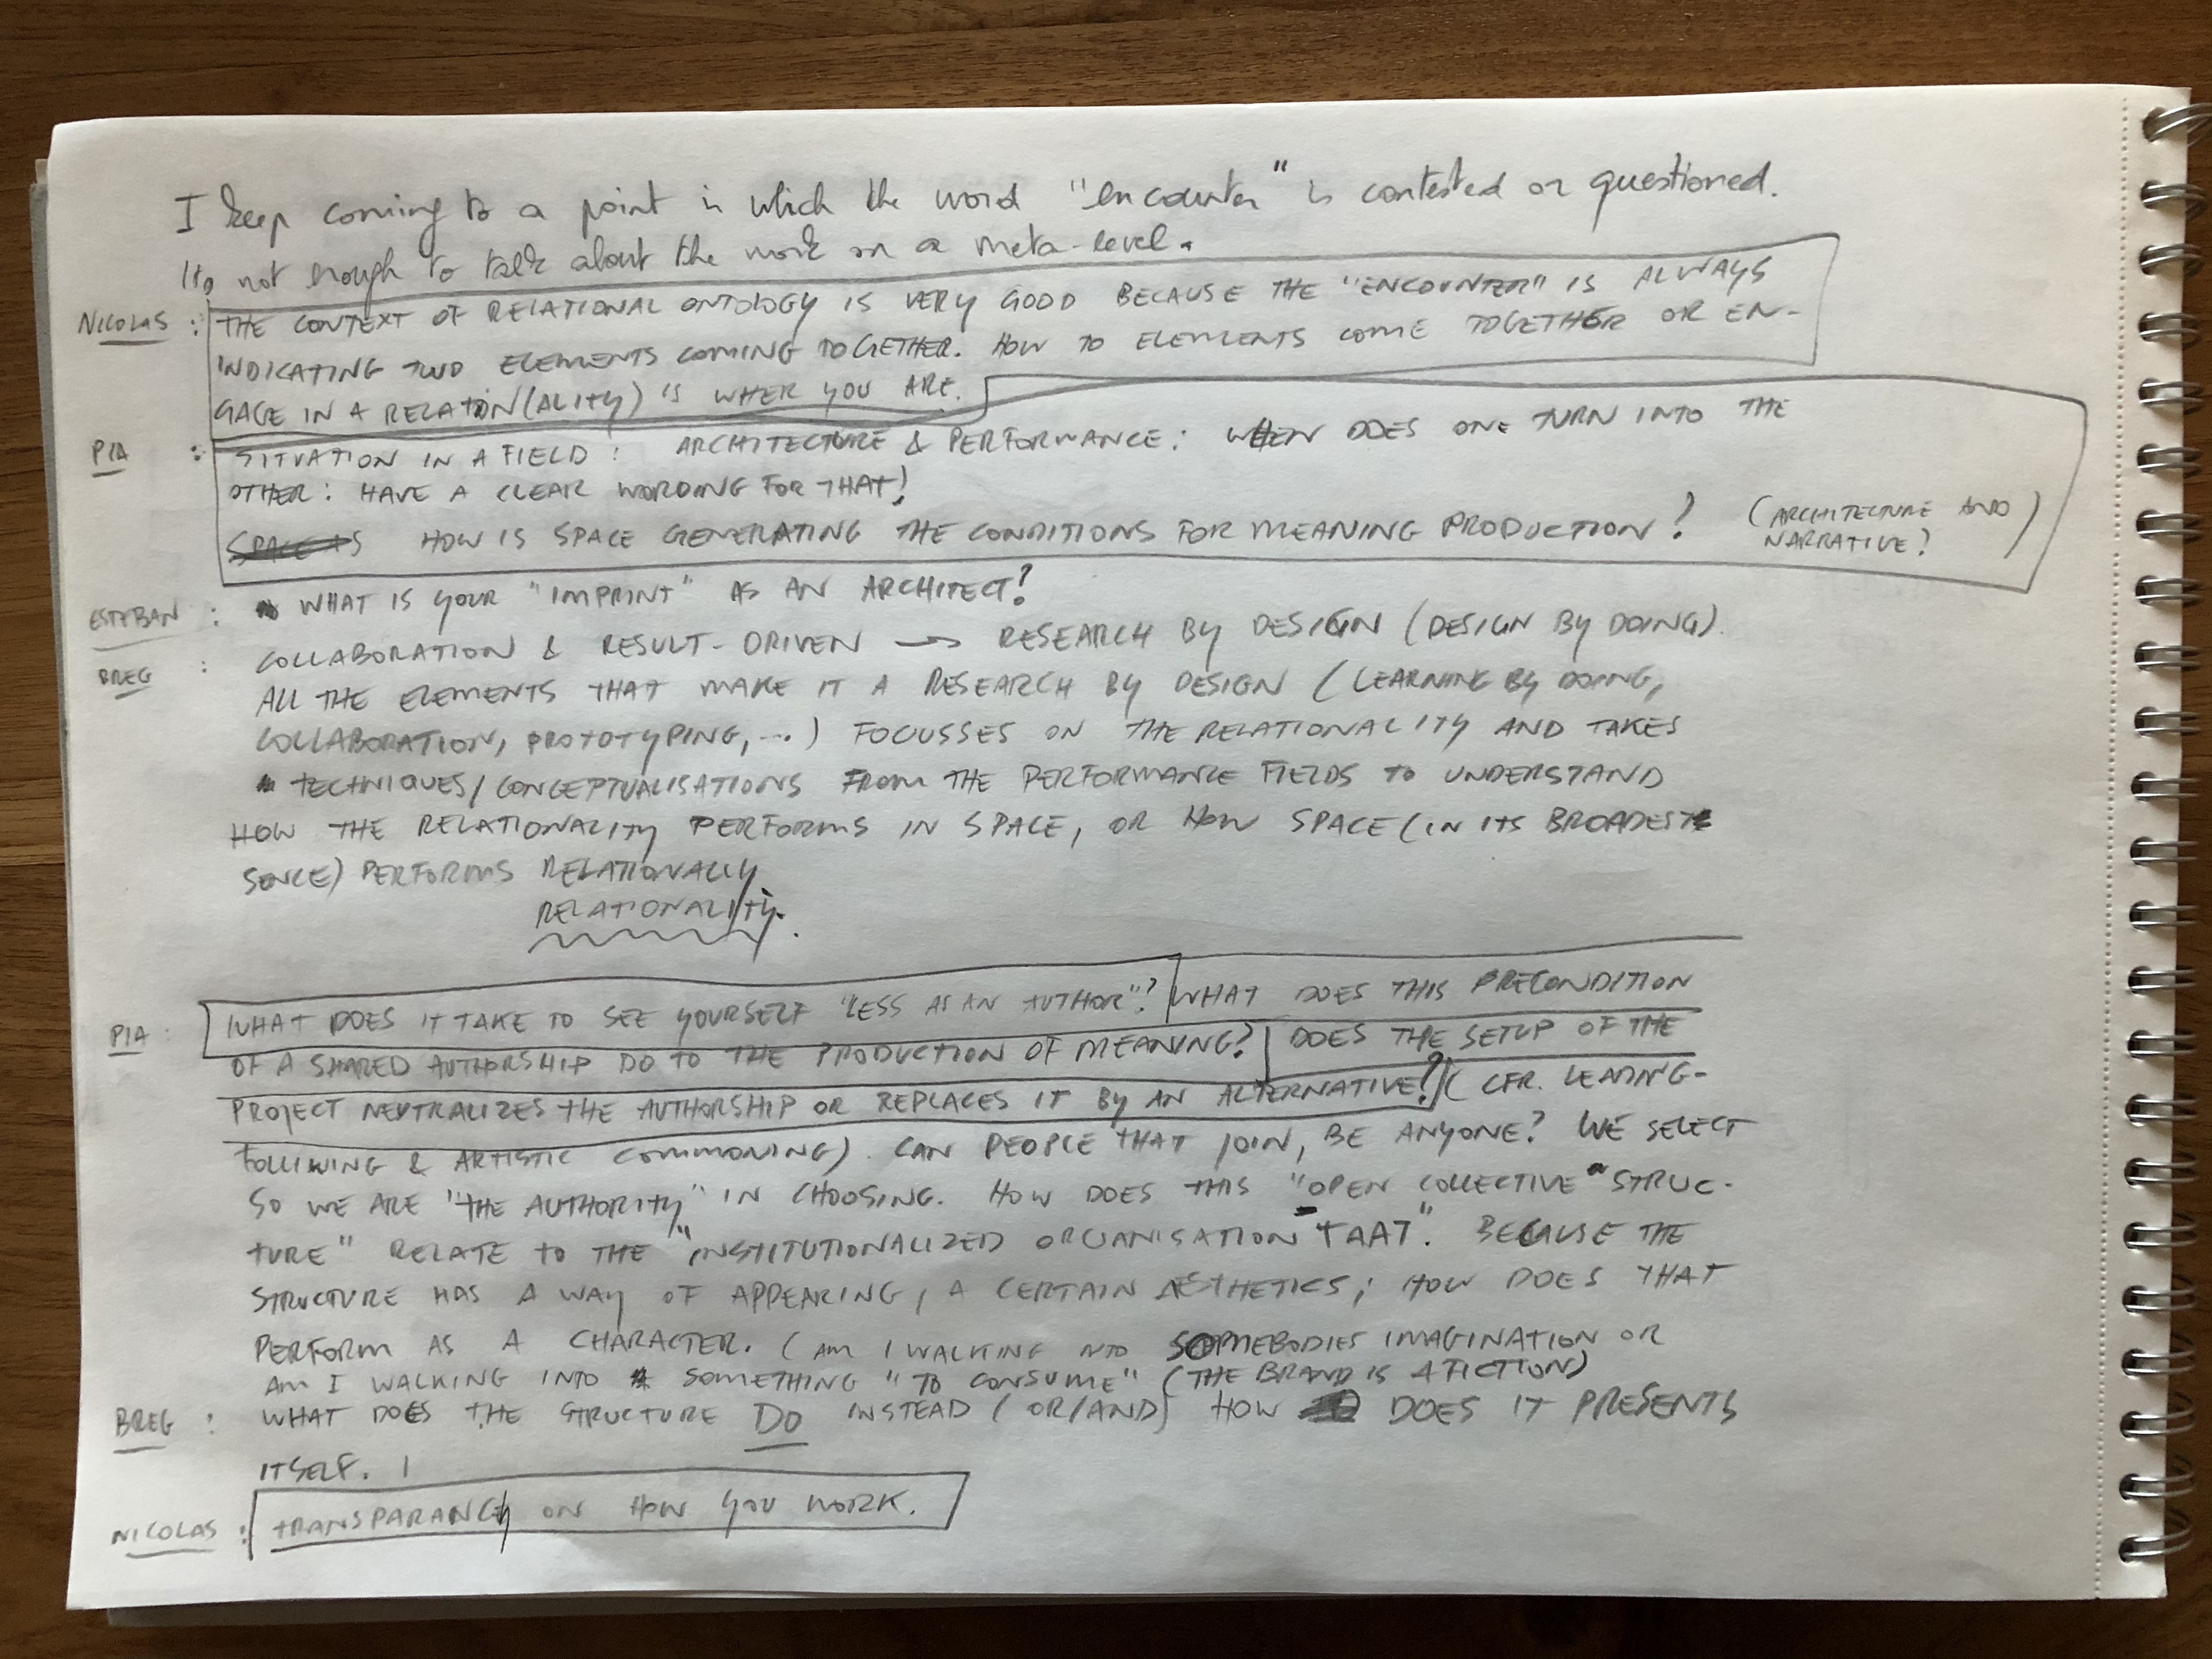 I keep coming to a point in which the word "encounter" is contested or questioned.
It's not enough to talk about the work on a meta-level.
NICOLAS : THE CONTEXT OF RELATIONAL ONTOLOGY IS VERY GOOD BECAUSE THE "ENCOUNTER" IS ALWAYS
INDICATING TWO ELEMENTS COMING TOGETHER. HOW TO ELEMENTS COME TOGETHER OR EN-
GAGE IN A RELATION(ALITY) IS WHER YOU ARE.
PIA : SITUATION IN A FIELD : ARCHITECTURE & PERFORMANCE: WHEN DOES ONE TURN INTO THE
OTHER: HAVE A CLEAR WORDING FOR THAT!
SPACE AS HOW IS SPACE GENERATING THE CONDITIONS FOR MEANING PRODUCTION? (ARCHITECTURE AND
NARRATIVE?)
ESTEBAN : WHAT IS YOUR "IMPRINT" AS AN ARCHITECT?
BREG : COLLABORATION & RESULT-DRIVEN → RESEARCH BY DESIGN (DESIGN BY DOING).
ALL THE ELEMENTS THAT MAKE IT A RESEARCH BY DESIGN (LEARNING BY DOING,
COLLABORATION, PROTOTYPING, ...) FOCUSSES ON THE RELATIONALITY AND TAKES
TECHNIQUES/CONCEPTUALISATIONS FROM THE PERFORMANCE FIELDS TO UNDERSTAND
HOW THE RELATIONALITY PERFORMS IN SPACE, OR HOW SPACE (IN ITS BROADEST
SENCE) PERFORMS RELATIONALLY
RELATIONALITY.
PIA : WHAT DOES IT TAKE TO SEE YOURSELF "LESS AS AN AUTHOR"? WHAT DOES THIS PRECONDITION
OF A SHARED AUTHORSHIP DO TO THE PRODUCTION OF MEANING? DOES THE SETUP OF THE
PROJECT NEUTRALIZES THE AUTHORSHIP OR REPLACES IT BY AN ALTERNATIVE? (CFR. LEADING-
FOLLOWING & ARTISTIC COMMONING). CAN PEOPLE THAT JOIN, BE ANYONE? WE SELECT
SO WE ARE "THE AUTHORITY" IN CHOOSING. HOW DOES THIS "OPEN COLLECTIVE" STRUC-
TURE" RELATE TO THE "INSTITUTIONALIZED ORGANISATION TAAT". BECAUSE THE
STRUCTURE HAS A WAY OF APPEARING, A CERTAIN AESTHETICS; HOW DOES THAT
PERFORM AS A CHARACTER. (AM I WALKING INTO SOMEBODIES IMAGINATION OR
AM I WALKING INTO SOMETHING "TO CONSUME" (THE BRAND IS A FICTION)
BREG : WHAT DOES THE STRUCTURE DO INSTEAD (OR/AND) HOW DOES IT PRESENTS
ITSELF. !
NICOLAS : TRANSPARANCY ON HOW YOU WORK.